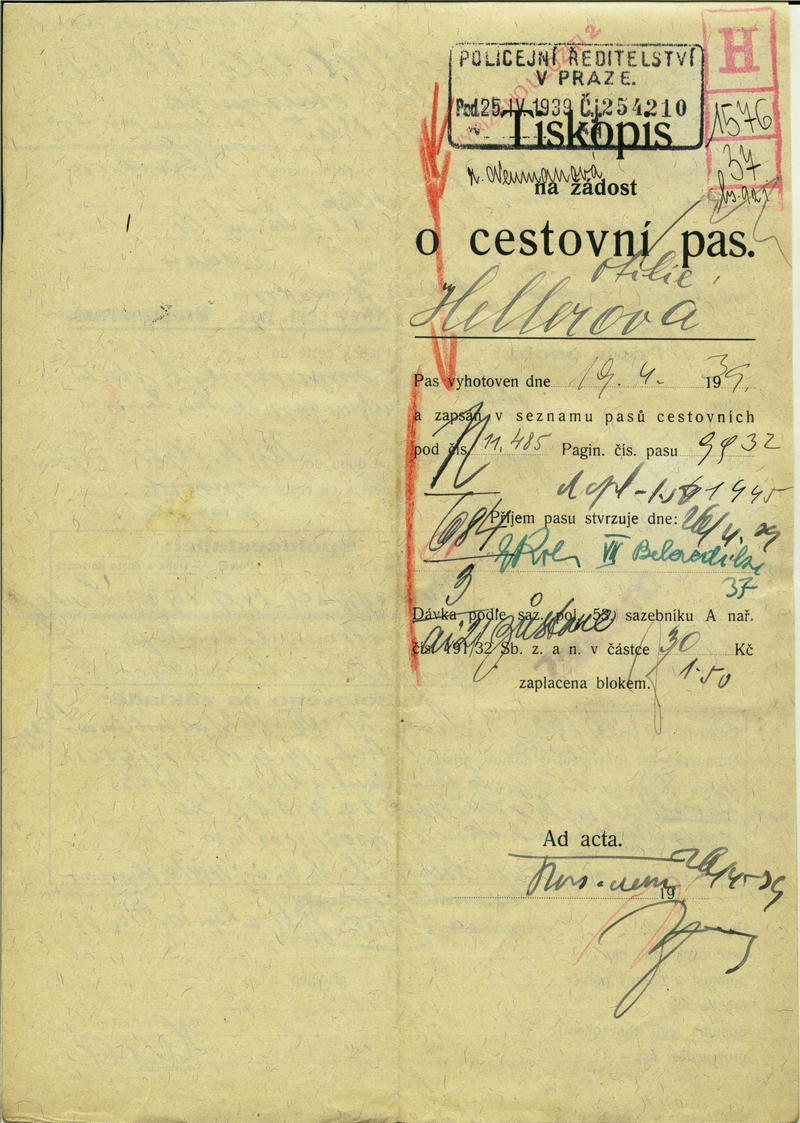 POLICEJNÍ ŘEDITELSTVÍ
V PRAZE.
Pod. 25. IV. 1939 Č.j. 254210
H
1576
37
Tiskopis
r. Neumanová
na žádost
o cestovní pas.
Otilie
Hellerova
Pas vyhotoven dne 19. 4. 1939.
a zapsán v seznamu pasů cestovních
pod čís. 11.485 Pagin. čís. pasu 9932
1945
Příjem pasu stvrzuje dne: 26/4. 39
684
VII Belcrediho
37
9
Dávka podle saz. pol. 53) sazebníku A nař.
čísl 191/32 Sb. z. a n. v částce 30 Kč
1·50
zaplacena blokem.
Ad acta.
19